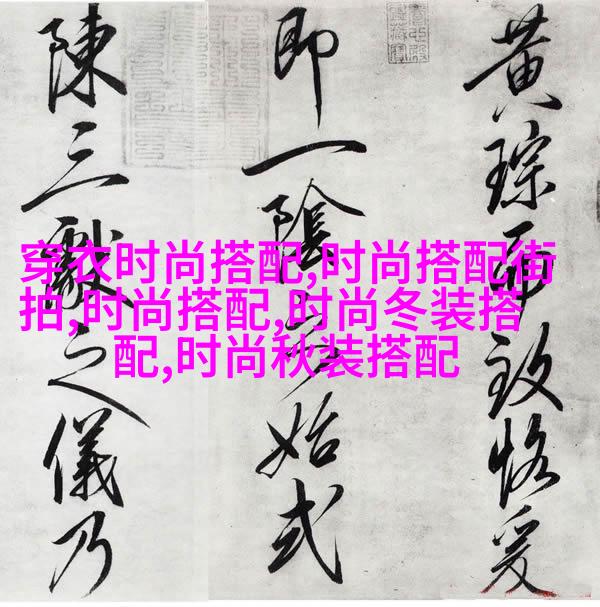 穿衣时尚搭配,时尚搭配街
拍,时尚搭配,时尚冬装搭
配,时尚秋装搭配
黄琮而致恪爰
即一陰始式
陳三獻之儀乃